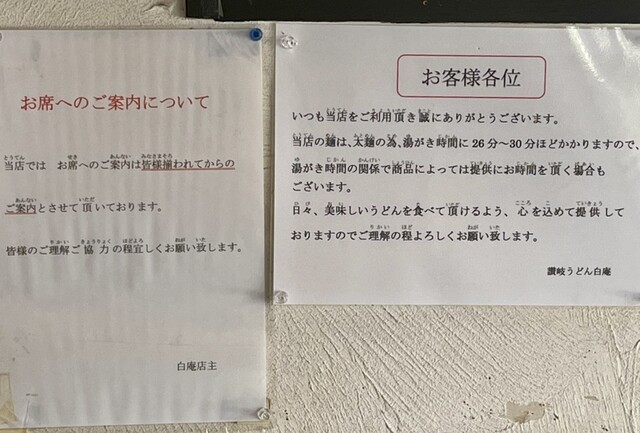 お席へのご案内について
当店では　お席へのご案内は皆様揃われてからの
ご案内とさせて頂いております。
皆様のご理解ご協力の程宜しくお願い致します。
白庵店主
お客様各位
いつも当店をご利用頂き誠にありがとうございます。
当店の麺は、太麺の為、湯がき時間に26分～30分ほどかかりますので、
湯がき時間の関係で商品によっては提供にお時間を頂く場合も
ございます。
日々、美味しいうどんを食べて頂けるよう、心を込めて提供して
おりますのでご理解の程よろしくお願い致します。
讃岐うどん白庵